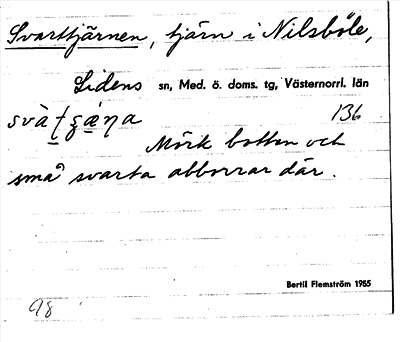 Svarttjärnen, tjärn i Nilsböle,
Lidens sn, Med. ö. doms. tg, Västernorrl. län
136
Mörk botten och
små svarta abborrar där.
Bertil Flemström 1955
98